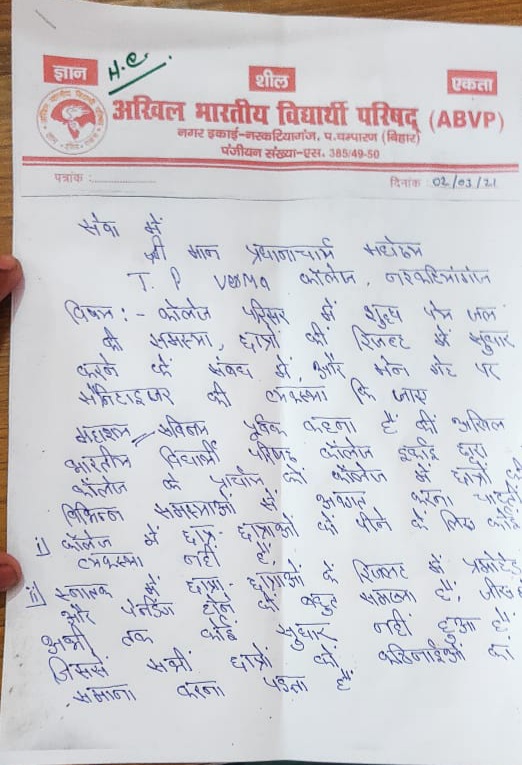 ज्ञान
H.C.
शील
एकता
अखिल भारतीय विद्यार्थी परिषद् (ABVP)
नगर इकाई-नरकटियागंज, प.चम्पारण (बिहार)
पंजीयन संख्या-एस. 385/49-50
पत्रांक :
दिनांक 02/03/21
सेवा में
श्री मान प्रधानाचार्य महोदय
T. P VERMA कॉलेज, नरकटियागंज
विषय :- कॉलेज परिसर में शुद्ध पेय जल
की समस्या, छात्रों की रिजल्ट में सुधार
करने के संबंध में, और मेन गेट पर
सेनिटाइजर की व्यवस्था कि जाए
महाशय सविनय पूर्वक कहना है की अखिल
भारतीय विद्यार्थी परिषद कॉलेज इकाई द्वारा
कॉलेज के प्राचार्य को कॉलेज में छात्रों
विभिन्न समस्याओं से अवगत करना
i) कॉलेज में छात्र छात्राओं को पीने के लिए
व्यवस्था नहीं है।
ii) स्नातक के छात्र छात्राओं के रिजल्ट में प्रमोटेड
और पेन्डिंग होने की बहुत समस्या है,
अभी तक कोई सुधार नहीं हुआ है।
जिससे सभी छात्रों को कठिनाईओं को
समाना करना पड़ता है